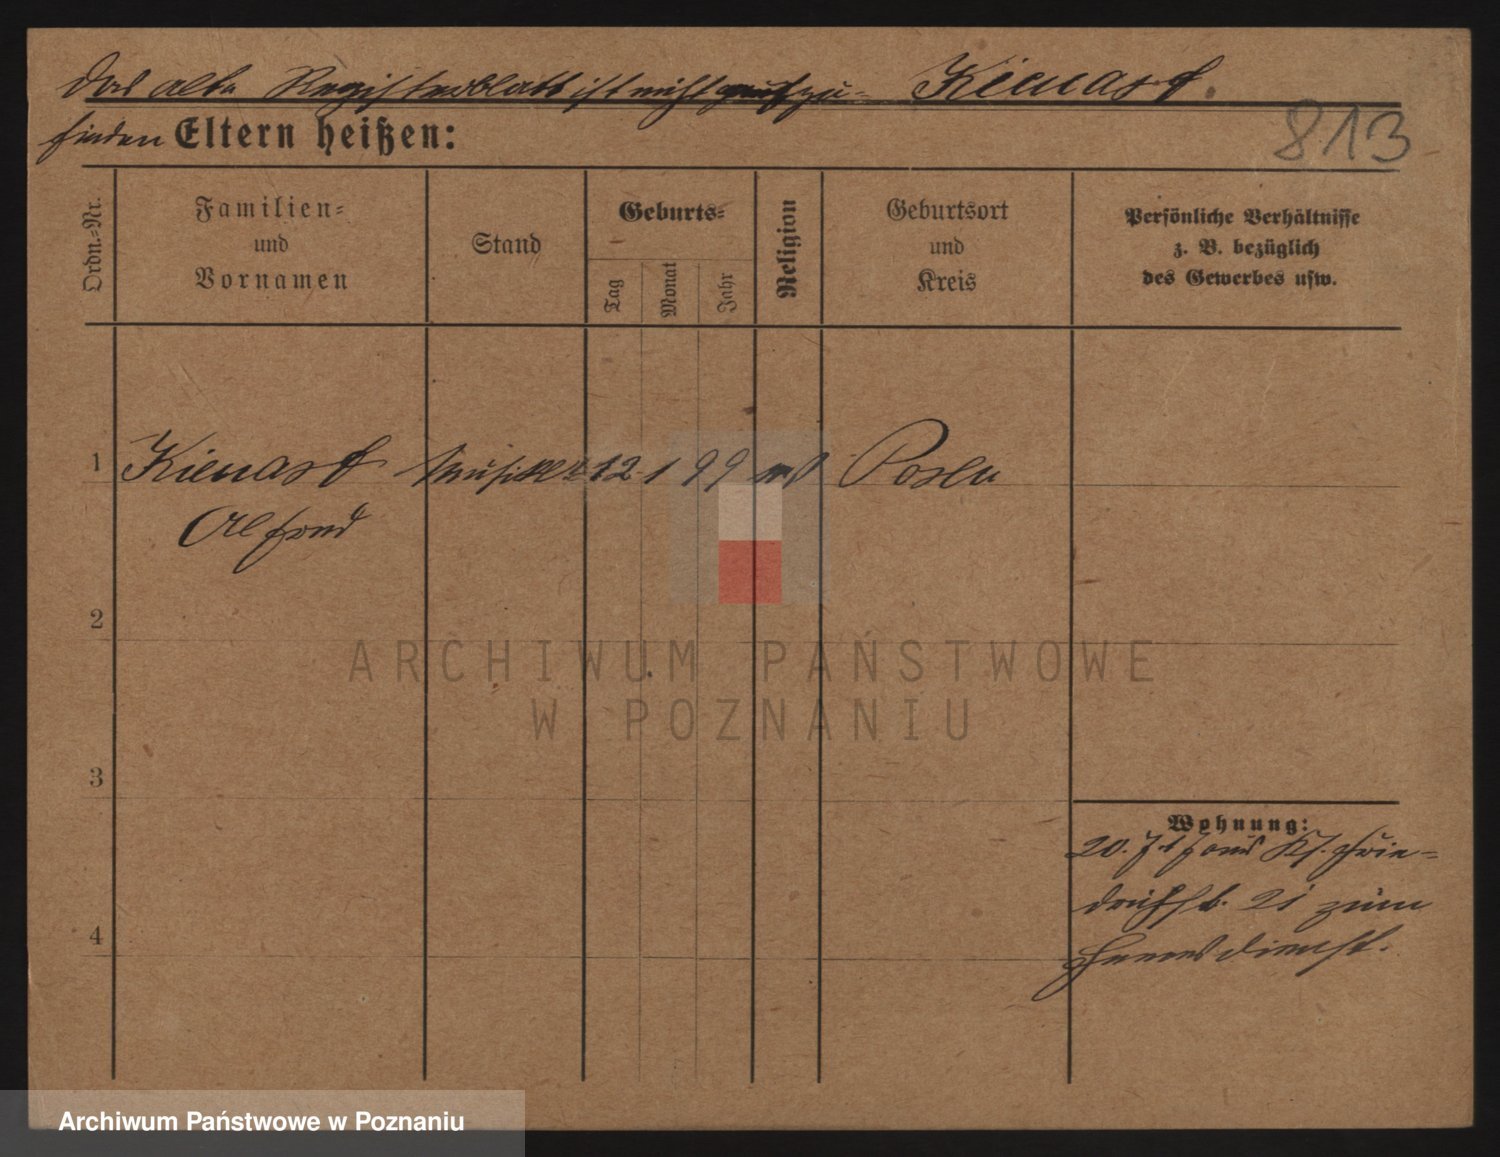 Das alte Registerblatt ist nicht aufzu- Kienast.
finden Eltern heißen:
813
Ordn.-Nr.
Familien-
und
Vornamen
Stand
Geburts-
Tag
Monat
Jahr
Religion
Geburtsort
und
Kreis
Persönliche Verhältnisse
z. B. bezüglich
des Gewerbes usw.
1 Kienast Musiker 12 1 99 Posen
Alfons
2
ARCHIWUM PAŃSTWOWE
W POZNANIU
3
Wohnung:
20. 7. Frie-
drichstr. 21 zum
4
Heeresdienst.
Archiwum Państwowe w Poznaniu